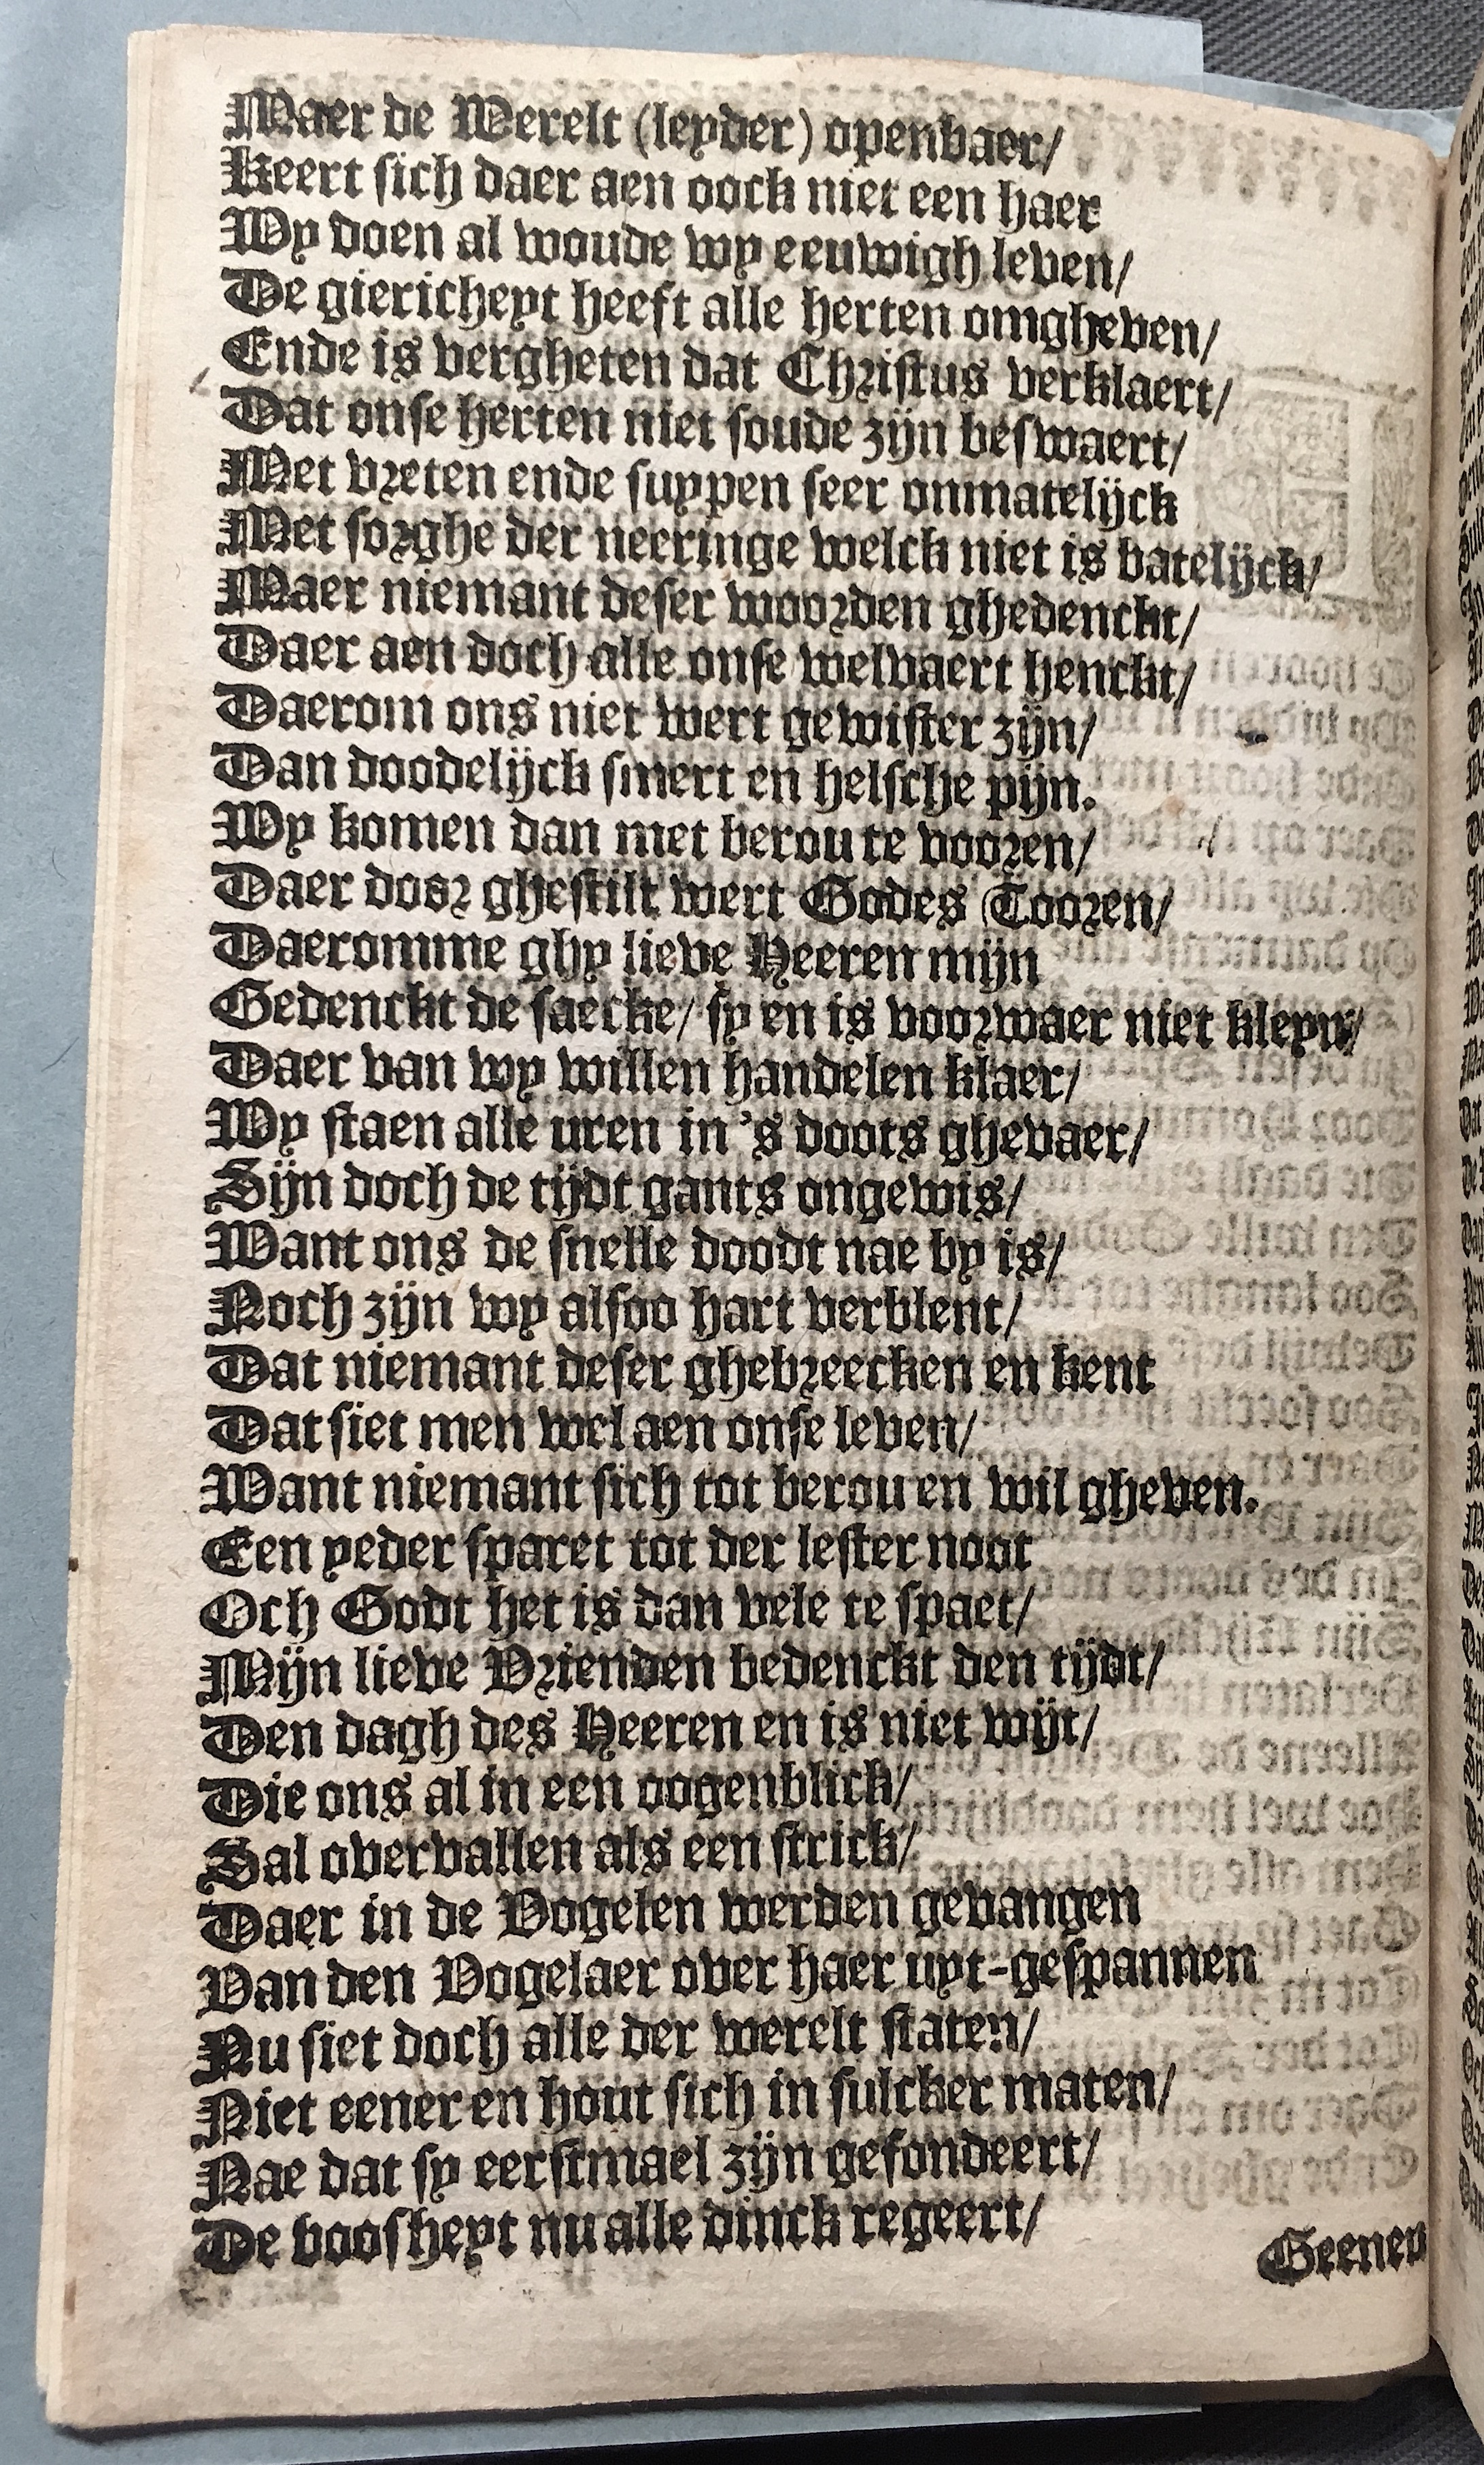 Maer de Werelt (leyder) openbaer/
Keert sich daer aen oock niet een haer
Wy doen al woude wy eeuwigh leven/
De giericheyt heeft alle herten omgheven/
Ende is vergheten dat Christus verklaert/
Dat onse herten niet soude zijn beswaert/
Met vreten ende suypen seer onmatelijck
Met sorghe der neeringe welck niet is batelijck/
Maer niemant deser woorden ghedenckt/
Daer aen doch alle onse welvaert henckt/
Daerom ons niet wert gewister zijn/
Dan doodelijck smert en helsche pijn.
Wy komen dan met berou te vooren/
Daer door ghestilt wert Godes Tooren/
Daeromme ghy lieve Heeren mijn
Gedenckt de saecke/ sy en is voorwaer niet kleyn/
Daer van wy willen handelen klaer/
Wy staen alle uren in 's doots ghevaer/
Sijn doch de tijdt gants ongewis/
Want ons de snelle doodt nae by is/
Noch zijn wy alsoo hart verblent/
Dat niemant deser ghebreecken en kent
Dat siet men wel aen onse leven/
Want niemant sich tot berou en wil gheven.
Een yeder sparet tot der lester noot
Och Godt het is dan vele te spaet/
Mijn lieve Vrienden bedenckt den tijdt/
Den dagh des Heeren en is niet wijt/
Die ons al in een oogenblick/
Sal overvallen als een strick/
Daer in de Vogelen werden gevangen
Van den Vogelaer over haer uyt-gespannen
Nu siet doch alle der werelt staten/
Niet eener en hout sich in sulcker maten/
Nae dat sy eerstmael zijn gefondeert/
De boosheyt nu alle dinck regeert/
Geenen